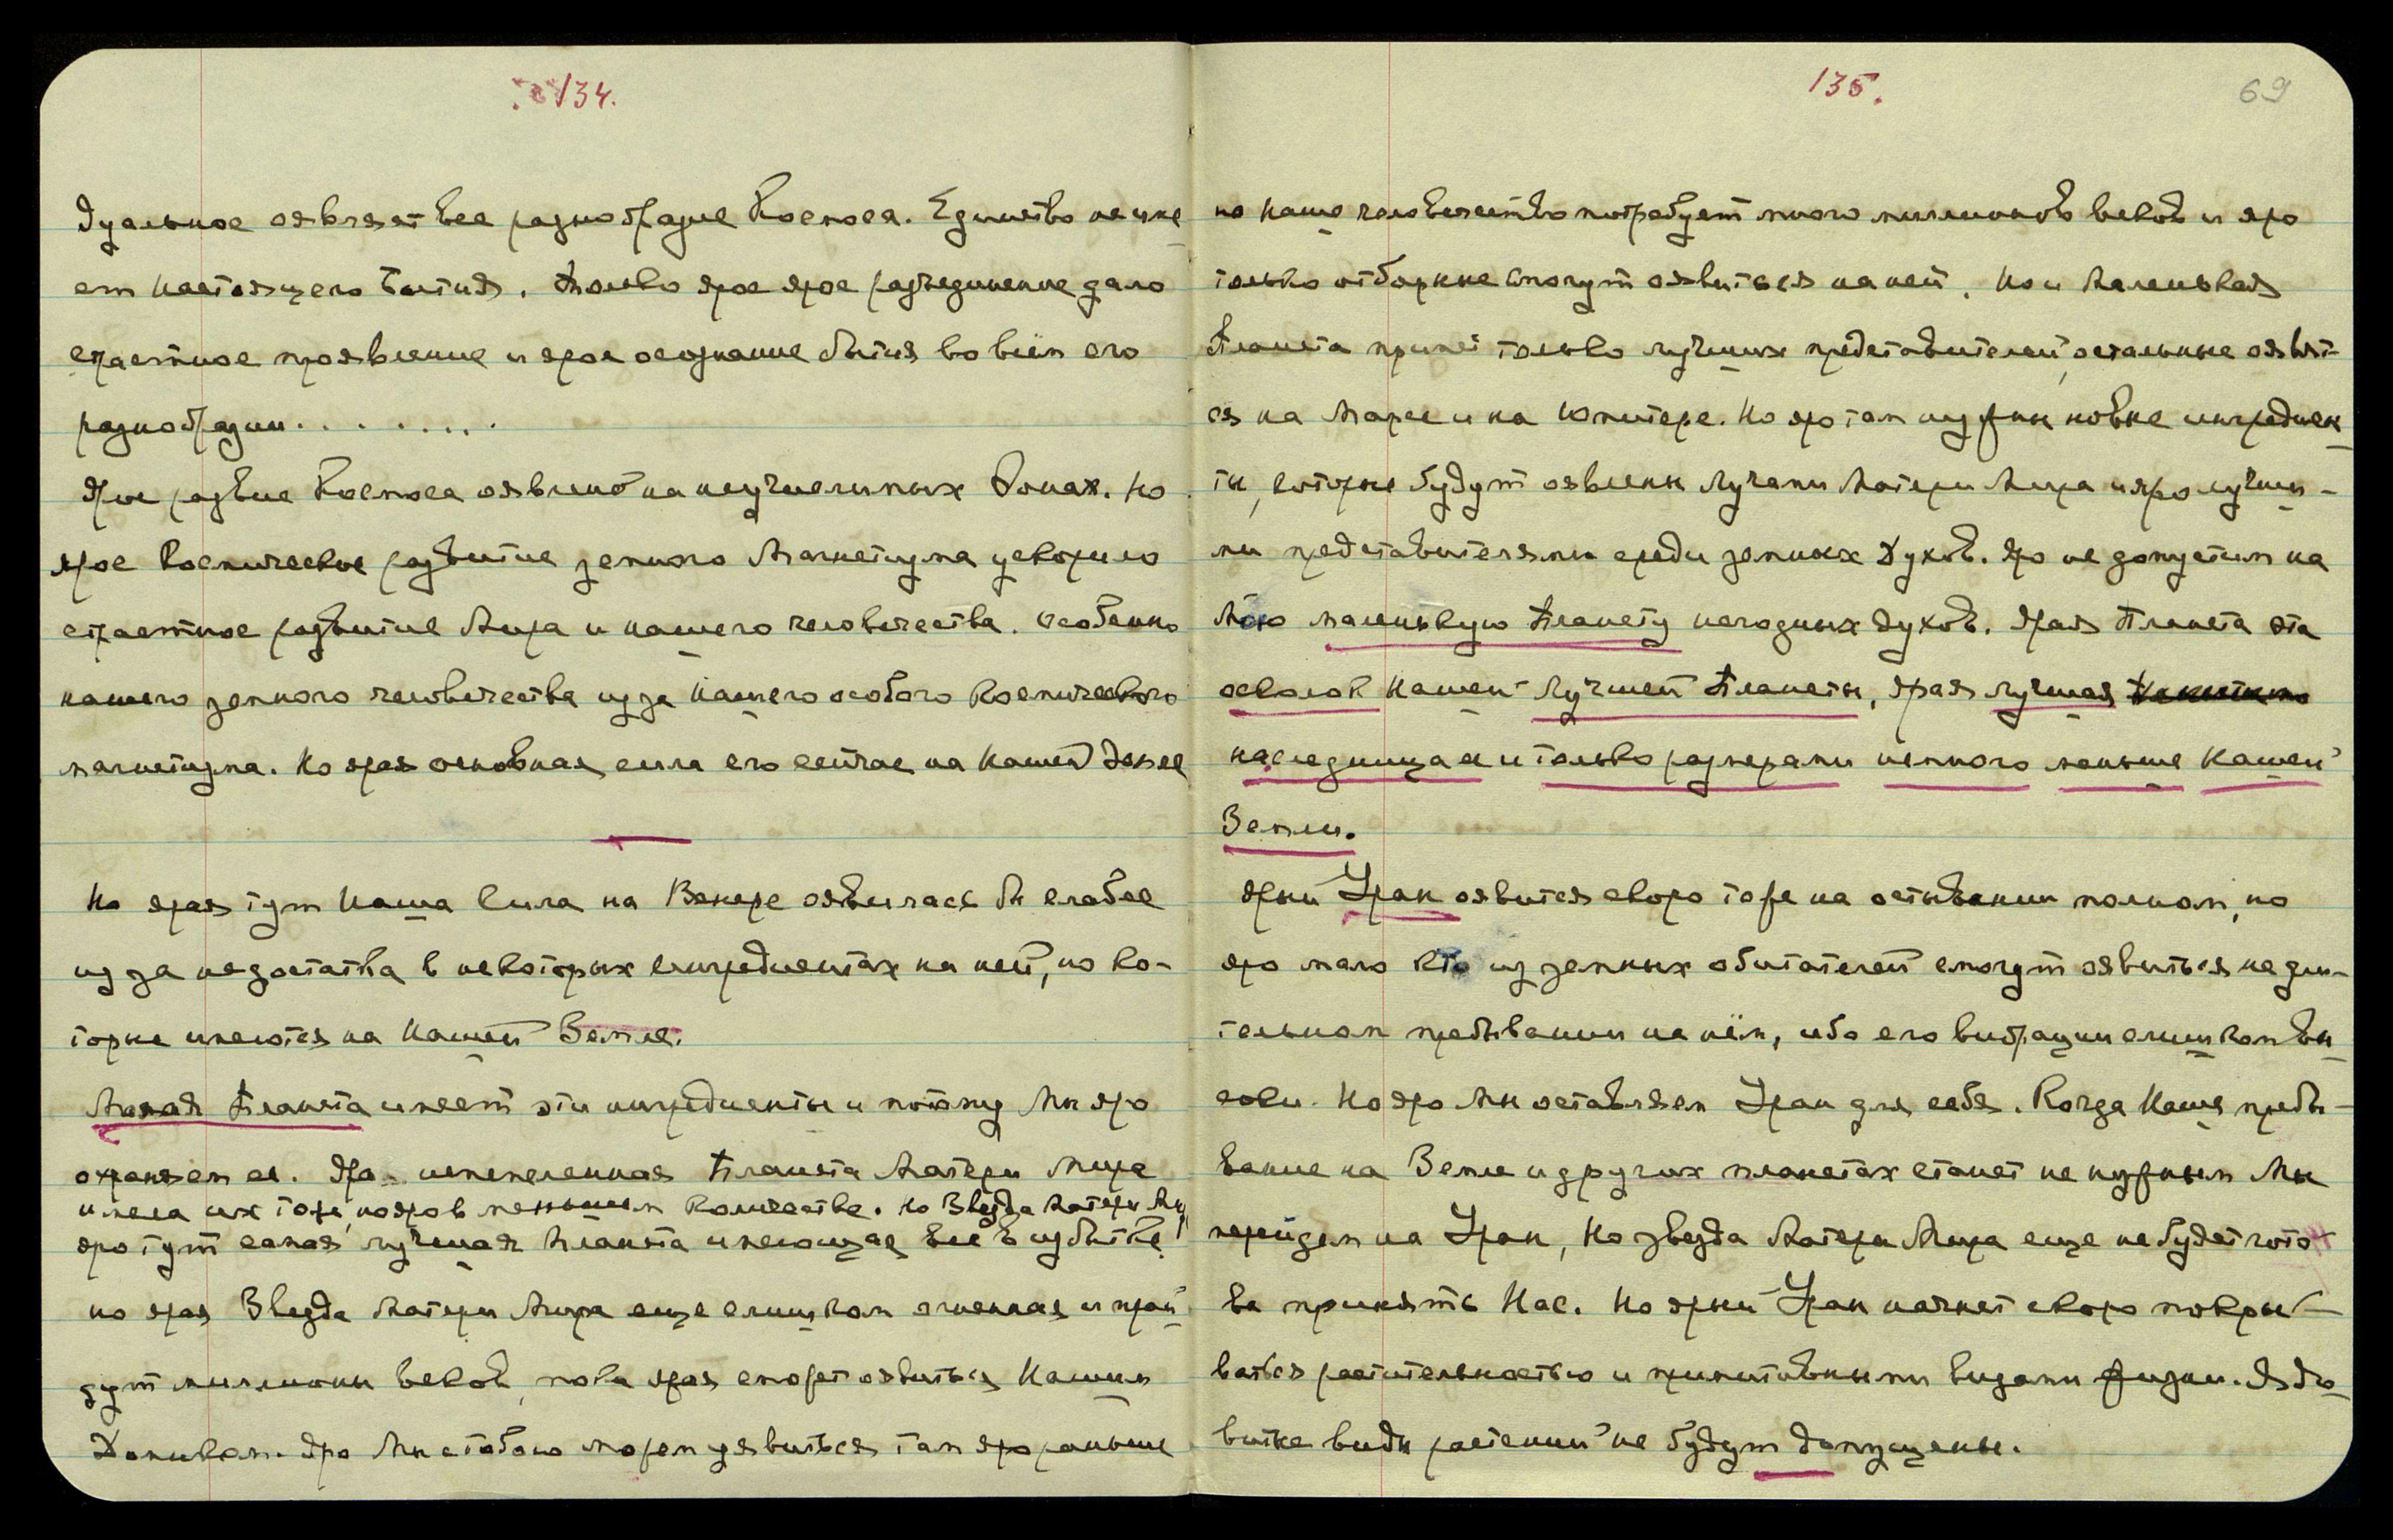 134.
дуальное оявляет все разнообразие Космоса. Единство не име
ет настоящего Бытия. Только ярое ярое разъединение дало
страстное проявление и ярое осознание бытия во всём его
разнообразии. . . . . . . . .
Ярое развие Космоса оявлено на неучислимых Домах. Но
ярое Космическое развитие земного Магнетизма ускорило
страстное развитие Мира и нашего человечества. Особенно
нашего земного человечества из за Нашего особого Космического
магнетизма. Но ярая основная сила его сейчас на Нашей Земле
Но ярая тут Наша Сила на Венере оявилась бы слабее
из за недостатка в некоторых ингредиентах на ней, но ко-
торые имеются на Нашей Земле.
Малая Планета имеет эти ингредиенты и потому Мы яро
охраняем ее. Яро испепеленная Планета Матери Мира
имела их тоже, но яро в меньшем количестве. Но Звезда Матери Ми
яро тут самая лучшая Планета имеющая все в избытке!
но ярая Звезда Матери Мира еще слишком огненная и прой
дут миллионы веков, пока ярая сможет оявиться Нашим
Домиком. Яро Мы с тобою можем уявиться там яро раньше
135.
69
но наше человечество потребует много миллионов веков и яро
только отборные смогут оявиться на ней. Но и Маленькая
Планета примет только лучших представителей, остальные оявят-
ся на Марсе и на Юпитере. Но яро там нужны новые ингредиен
ты, которые будут оявлены Лучами Матери Мира и яро лучши-
ми представителями среди земных Духов. Яро не допустим на
Мою маленькую Планету негодных духов. Ярая Планета эта
осколок Нашей Лучшей Планеты, ярая лучшая
наследница ее и только размерами немного меньше Нашей
Земли.
Ярый Уран оявится скоро тоже на остывании полном, но
яро мало кто из земных обитателей смогут оявиться на дли-
тельном пребывании на нём, ибо его вибрации слишком вы
соки. Но яро Мы оставляем Уран для себя. Когда Наше пребы-
вание на Земле и других планетах станет не нужным Мы
перейдем на Уран, Но звезда Матери Мира еще не будет гото
ва принять Нас. Но ярый Уран начнет скоро покры-
ваться растительностью и примитивными видами жизни. Ядо
витые виды растений не будут допущены.